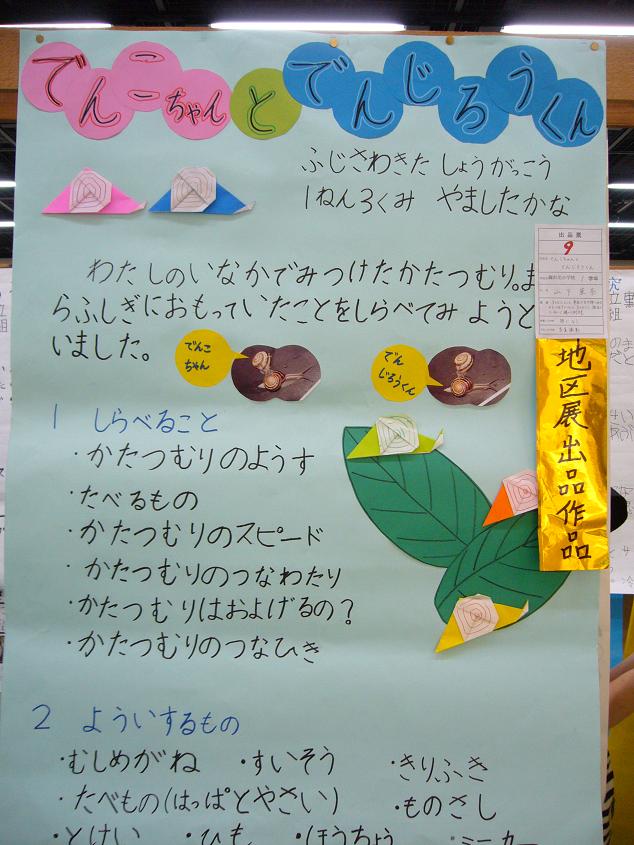 でんこちゃんとでんじろうくん
ふじさわきた しょうがっこう
1ねんろくみ やましたかな
出品票
9
地区展出品作品
わたしのいなかでみつけたかたつむり。ま
らふしぎにおもっていたことをしらべてみようと
いました。
でんこ
ちゃん
でん
じろうくん
1 しらべること
・かたつむりのようす
・たべるもの
・かたつむりのスピード
・かたつむりのつなわたり
・かたつむりはおよげるの?
・かたつむりのつなひき
2 よういするもの
・むしめがね ・すいそう ・きりふき
・たべもの(はっぱとやさい) ・ものさし
・とけい ・ひも ・ほうちょう ・ミニカー